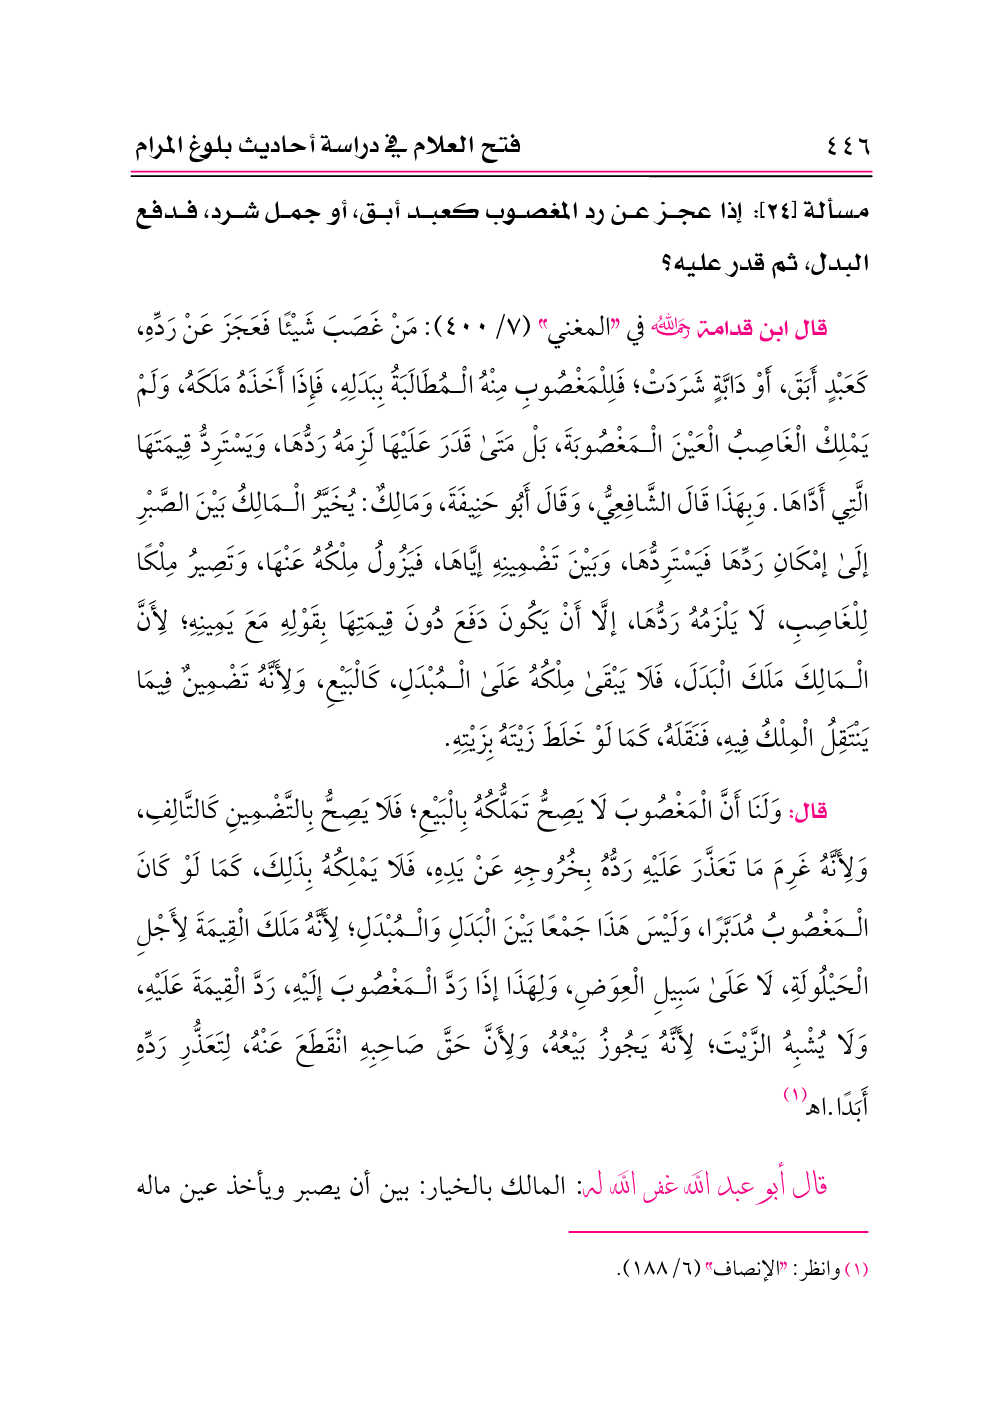 ٤٤٦ فتح العلام في دراسة أحاديث بلوغ المرام
مسألة [٢٤]: إذا عجز عن رد المغصوب كعبد أبق، أو جمل شرد، فدفع
البدل، ثم قدر عليه؟
قال ابن قدامة رحمه الله في "المغني" (٧/ ٤٠٠): مَنْ غَصَبَ شَيْئًا فَعَجَزَ عَنْ رَدِّهِ،
كَعَبْدٍ أَبَقَ، أَوْ دَابَّةٍ شَرَدَتْ؛ فَلِلْمَغْصُوبِ مِنْهُ الْـمُطَالَبَةُ بِبَدَلِهِ، فَإِذَا أَخَذَهُ مَلَكَهُ، وَلَمْ
يَمْلِكْ الْغَاصِبُ الْعَيْنَ الْـمَغْصُوبَةَ، بَلْ مَتَىٰ قَدَرَ عَلَيْهَا لَزِمَهُ رَدُّهَا، وَيَسْتَرِدُّ قِيمَتَهَا
الَّتِي أَدَّاهَا. وَبِهَذَا قَالَ الشَّافِعِيُّ، وَقَالَ أَبُو حَنِيفَةَ، وَمَالِكٌ: يُخَيَّرُ الْـمَالِكُ بَيْنَ الصَّبْرِ
إلَىٰ إمْكَانِ رَدِّهَا فَيَسْتَرِدُّهَا، وَبَيْنَ تَضْمِينِهِ إيَّاهَا، فَيَزُولُ مِلْكُهُ عَنْهَا، وَتَصِيرُ مِلْكًا
لِلْغَاصِبِ، لَا يَلْزَمُهُ رَدُّهَا، إلَّا أَنْ يَكُونَ دَفَعَ دُونَ قِيمَتِهَا بِقَوْلِهِ مَعَ يَمِينِهِ؛ لِأَنَّ
الْـمَالِكَ مَلَكَ الْبَدَلَ، فَلَا يَبْقَىٰ مِلْكُهُ عَلَىٰ الْـمُبْدَلِ، كَالْبَيْعِ، وَلِأَنَّهُ تَضْمِينٌ فِيمَا
يَنْتَقِلُ الْمِلْكُ فِيهِ، فَنَقَلَهُ، كَمَا لَوْ خَلَطَ زَيْتَهُ بِزَيْتِهِ.
قال: وَلَنَا أَنَّ الْمَغْصُوبَ لَا يَصِحُّ تَمَلُّكُهُ بِالْبَيْعِ؛ فَلَا يَصِحُّ بِالتَّضْمِينِ كَالتَّالِفِ،
وَلِأَنَّهُ غَرِمَ مَا تَعَذَّرَ عَلَيْهِ رَدُّهُ بِخُرُوجِهِ عَنْ يَدِهِ، فَلَا يَمْلِكُهُ بِذَلِكَ، كَمَا لَوْ كَانَ
الْـمَغْصُوبُ مُدَبَّرًا، وَلَيْسَ هَذَا جَمْعًا بَيْنَ الْبَدَلِ وَالْـمُبْدَلِ؛ لِأَنَّهُ مَلَكَ الْقِيمَةَ لِأَجْلِ
الْحَيْلُولَةِ، لَا عَلَىٰ سَبِيلِ الْعِوَضِ، وَلِهَذَا إذَا رَدَّ الْـمَغْصُوبَ إلَيْهِ، رَدَّ الْقِيمَةَ عَلَيْهِ،
وَلَا يُشْبِهُ الزَّيْتَ؛ لِأَنَّهُ يَجُوزُ بَيْعُهُ، وَلِأَنَّ حَقَّ صَاحِبِهِ انْقَطَعَ عَنْهُ، لِتَعَذُّرِ رَدِّهِ
أَبَدًا.اهـ(١)
قال أبو عبد الله غفر الله له: المالك بالخيار: بين أن يصبر ويأخذ عين ماله
(١) وانظر: "الإنصاف" (٦/ ١٨٨).